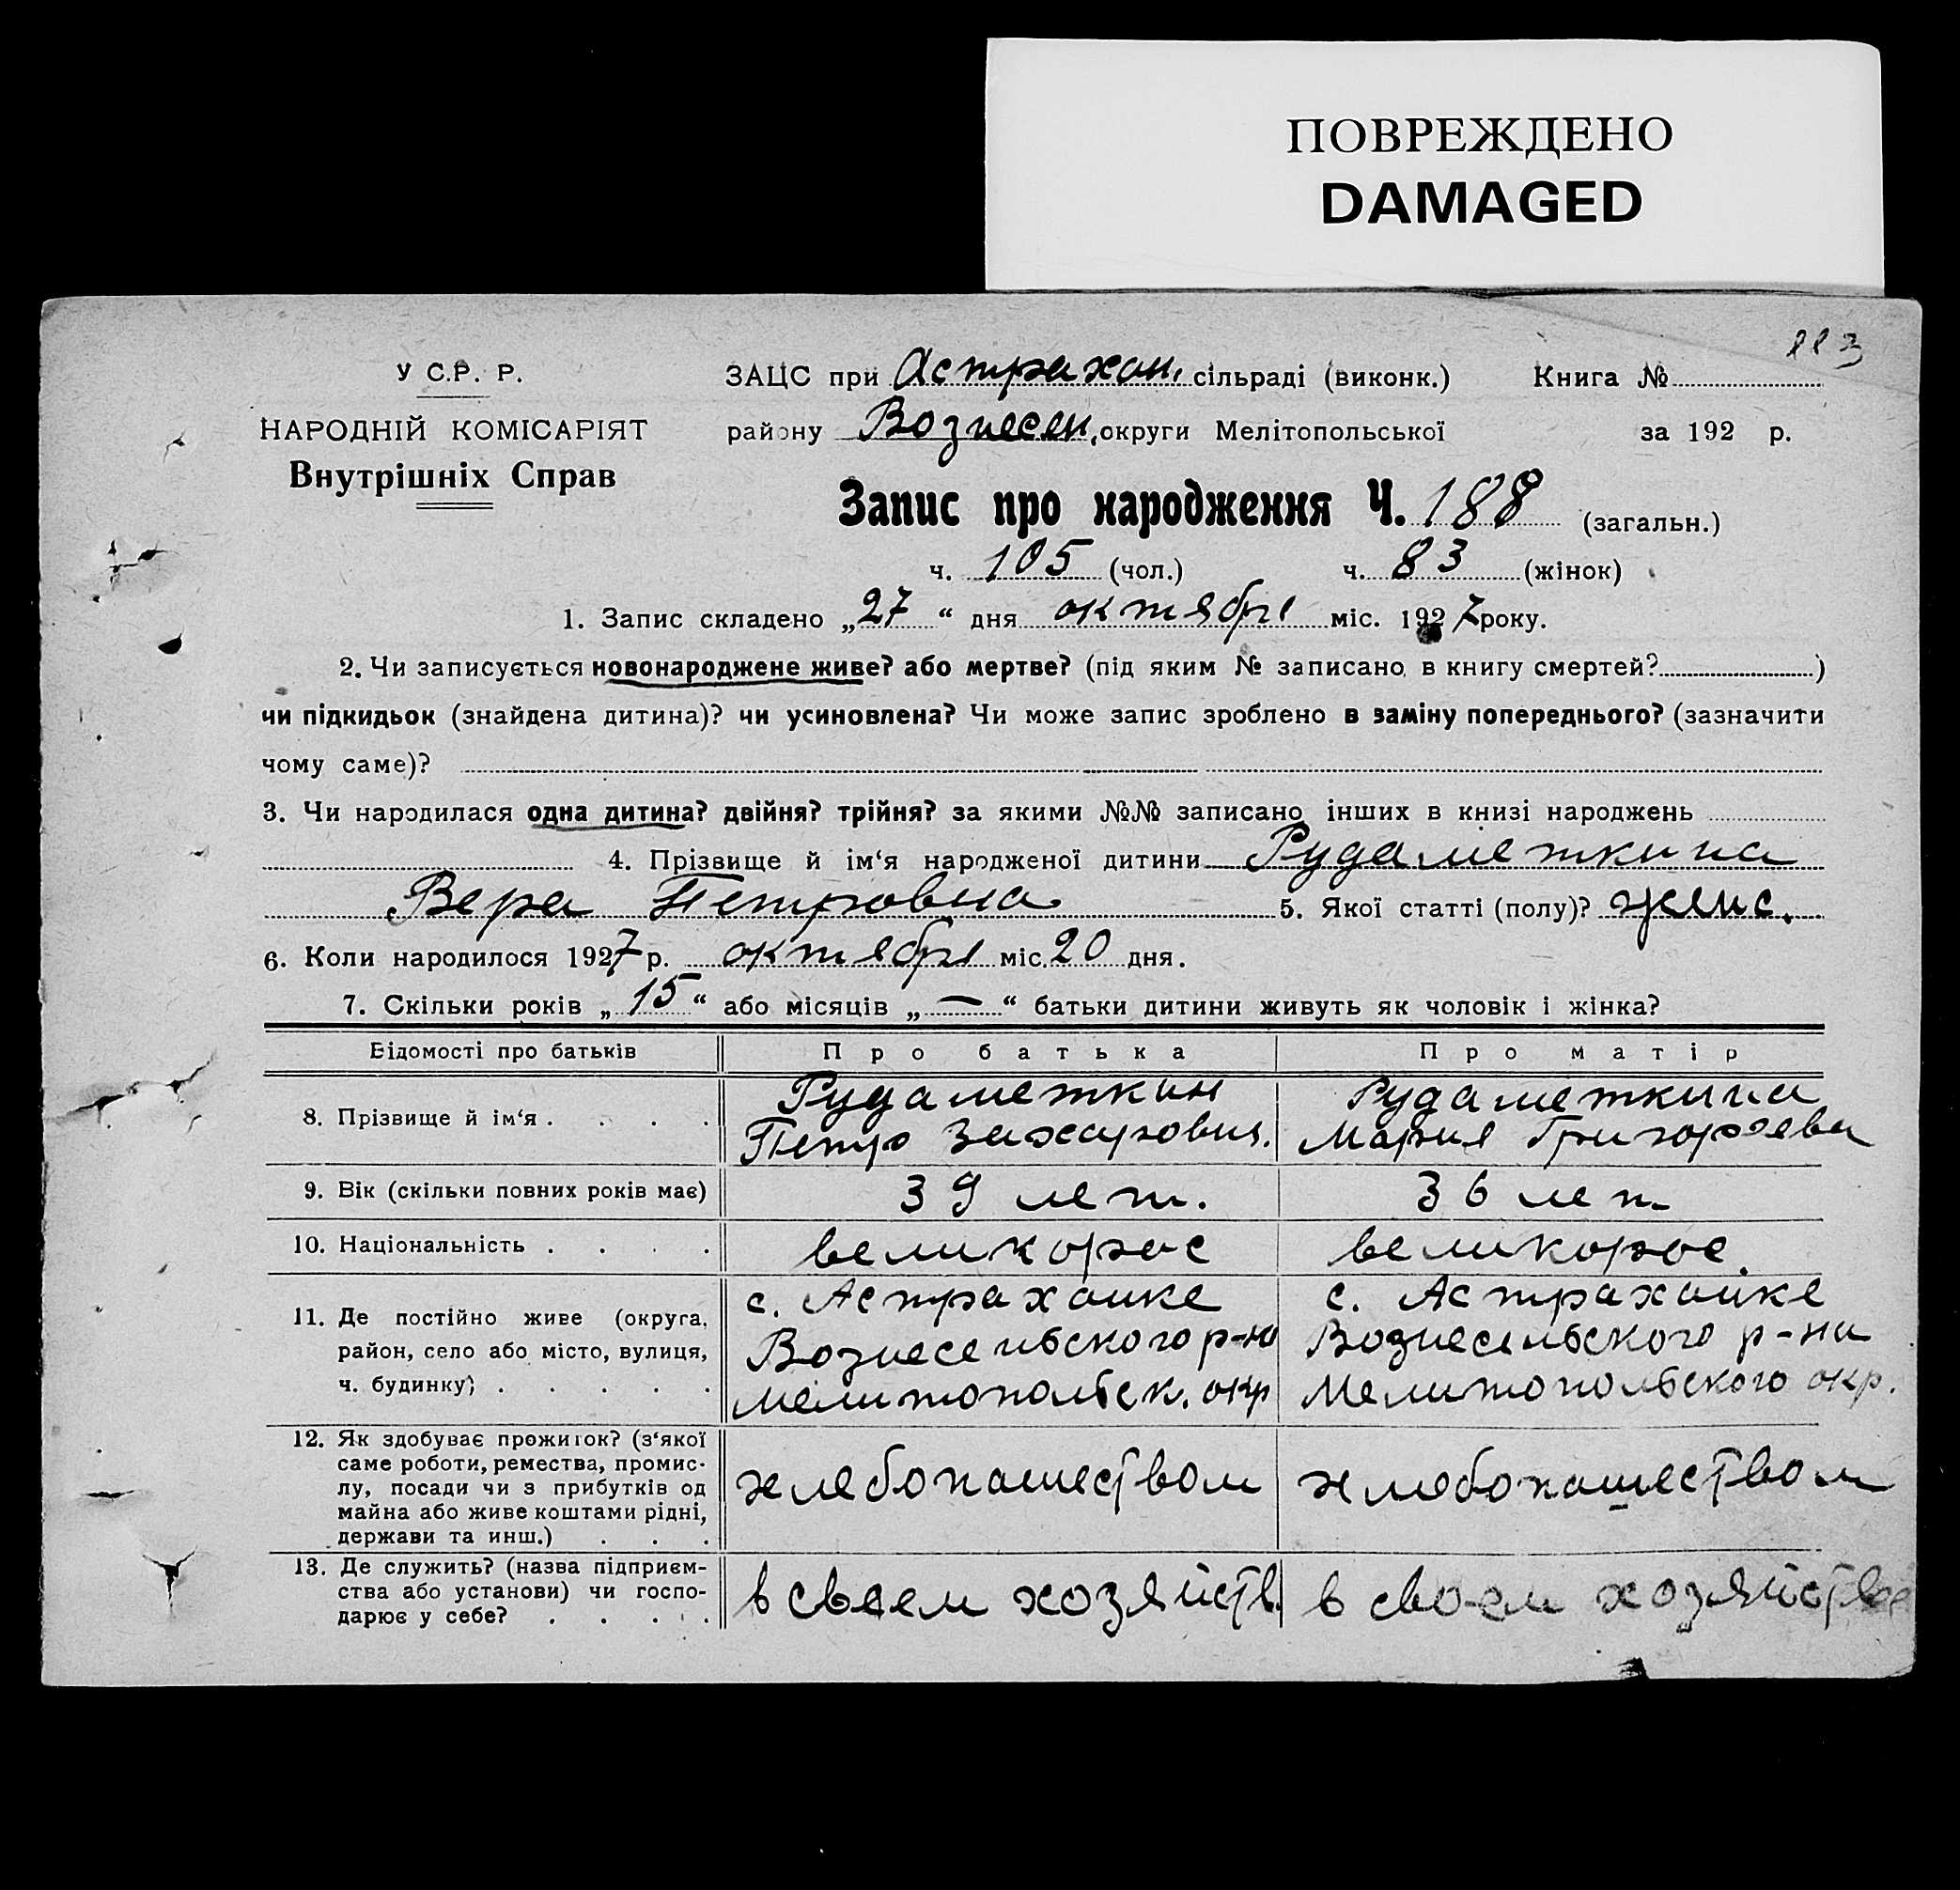 ПОВРЕЖДЕНО
DAMAGED
113
У С.Р. Р.
НАРОДНІЙ КОМІСАРІЯТ
Внутрішніх Справ
ЗАЦС при Астрахан. сільраді (виконк.) Книга №
району Вознесен. округи Мелітопольської за 192 р.
Запис про народження Ч. 188 (загальн.)
ч. 105 (чол.) ч. 83 (жінок)
1. Запис складено „27“ дня октября міс. 1927 року.
2. Чи записується новонароджене живе? або мертве? (під яким № записано в книгу смертей?)
чи підкидьок (знайдена дитина)? чи усиновлена? Чи може запис зроблено в заміну попереднього? (зазначити
чому саме)?
3. Чи народилася одна дитина? двійня? трійня? за якими №№ записано інших в книзі народжень
4. Прізвище й ім‘я народженої дитини Рудаметкина
Вера Петровна 5. Якої статті (полу)? женс.
6. Коли народилося 1927 р. октября міс. 20 дня.
7. Скільки років „15“ або місяців „—“ батьки дитини живуть як чоловік і жінка?
Відомості про батьків Про батька Про матір
8. Прізвище й ім‘я . . . . Рудаметкин Рудаметкина
Петр Захарович. Мария Григорьева
9. Вік (скільки повних років має) 39 лет. 36 лет
10. Національність . . . . великорос великорос.
11. Де постійно живе (округа, с. Астраханке с. Астраханке
район, село або місто, вулиця, Вознесеньского р-на Вознесеньского р-на
ч. будинку) . . . . . Мелитопольск. окр Мелитопольского окр.
12. Як здобуває прожиток? (з‘якої
саме роботи, ремества, промис-
лу, посади чи з прибутків од хлебопашеством хлебопашеством
майна або живе коштами рідні,
держави та инш.) . . .
13. Де служить? (назва підприєм-
ства або установи) чи госпо- в своем хозяйств. в своем хозяйстве
дарює у себе? . . . .